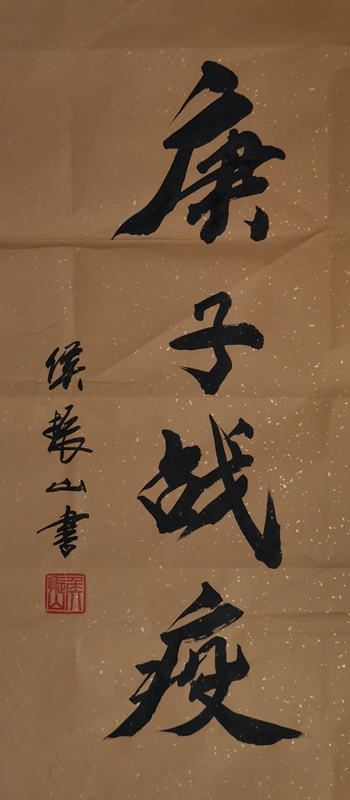 庚子战疫
侯振山書